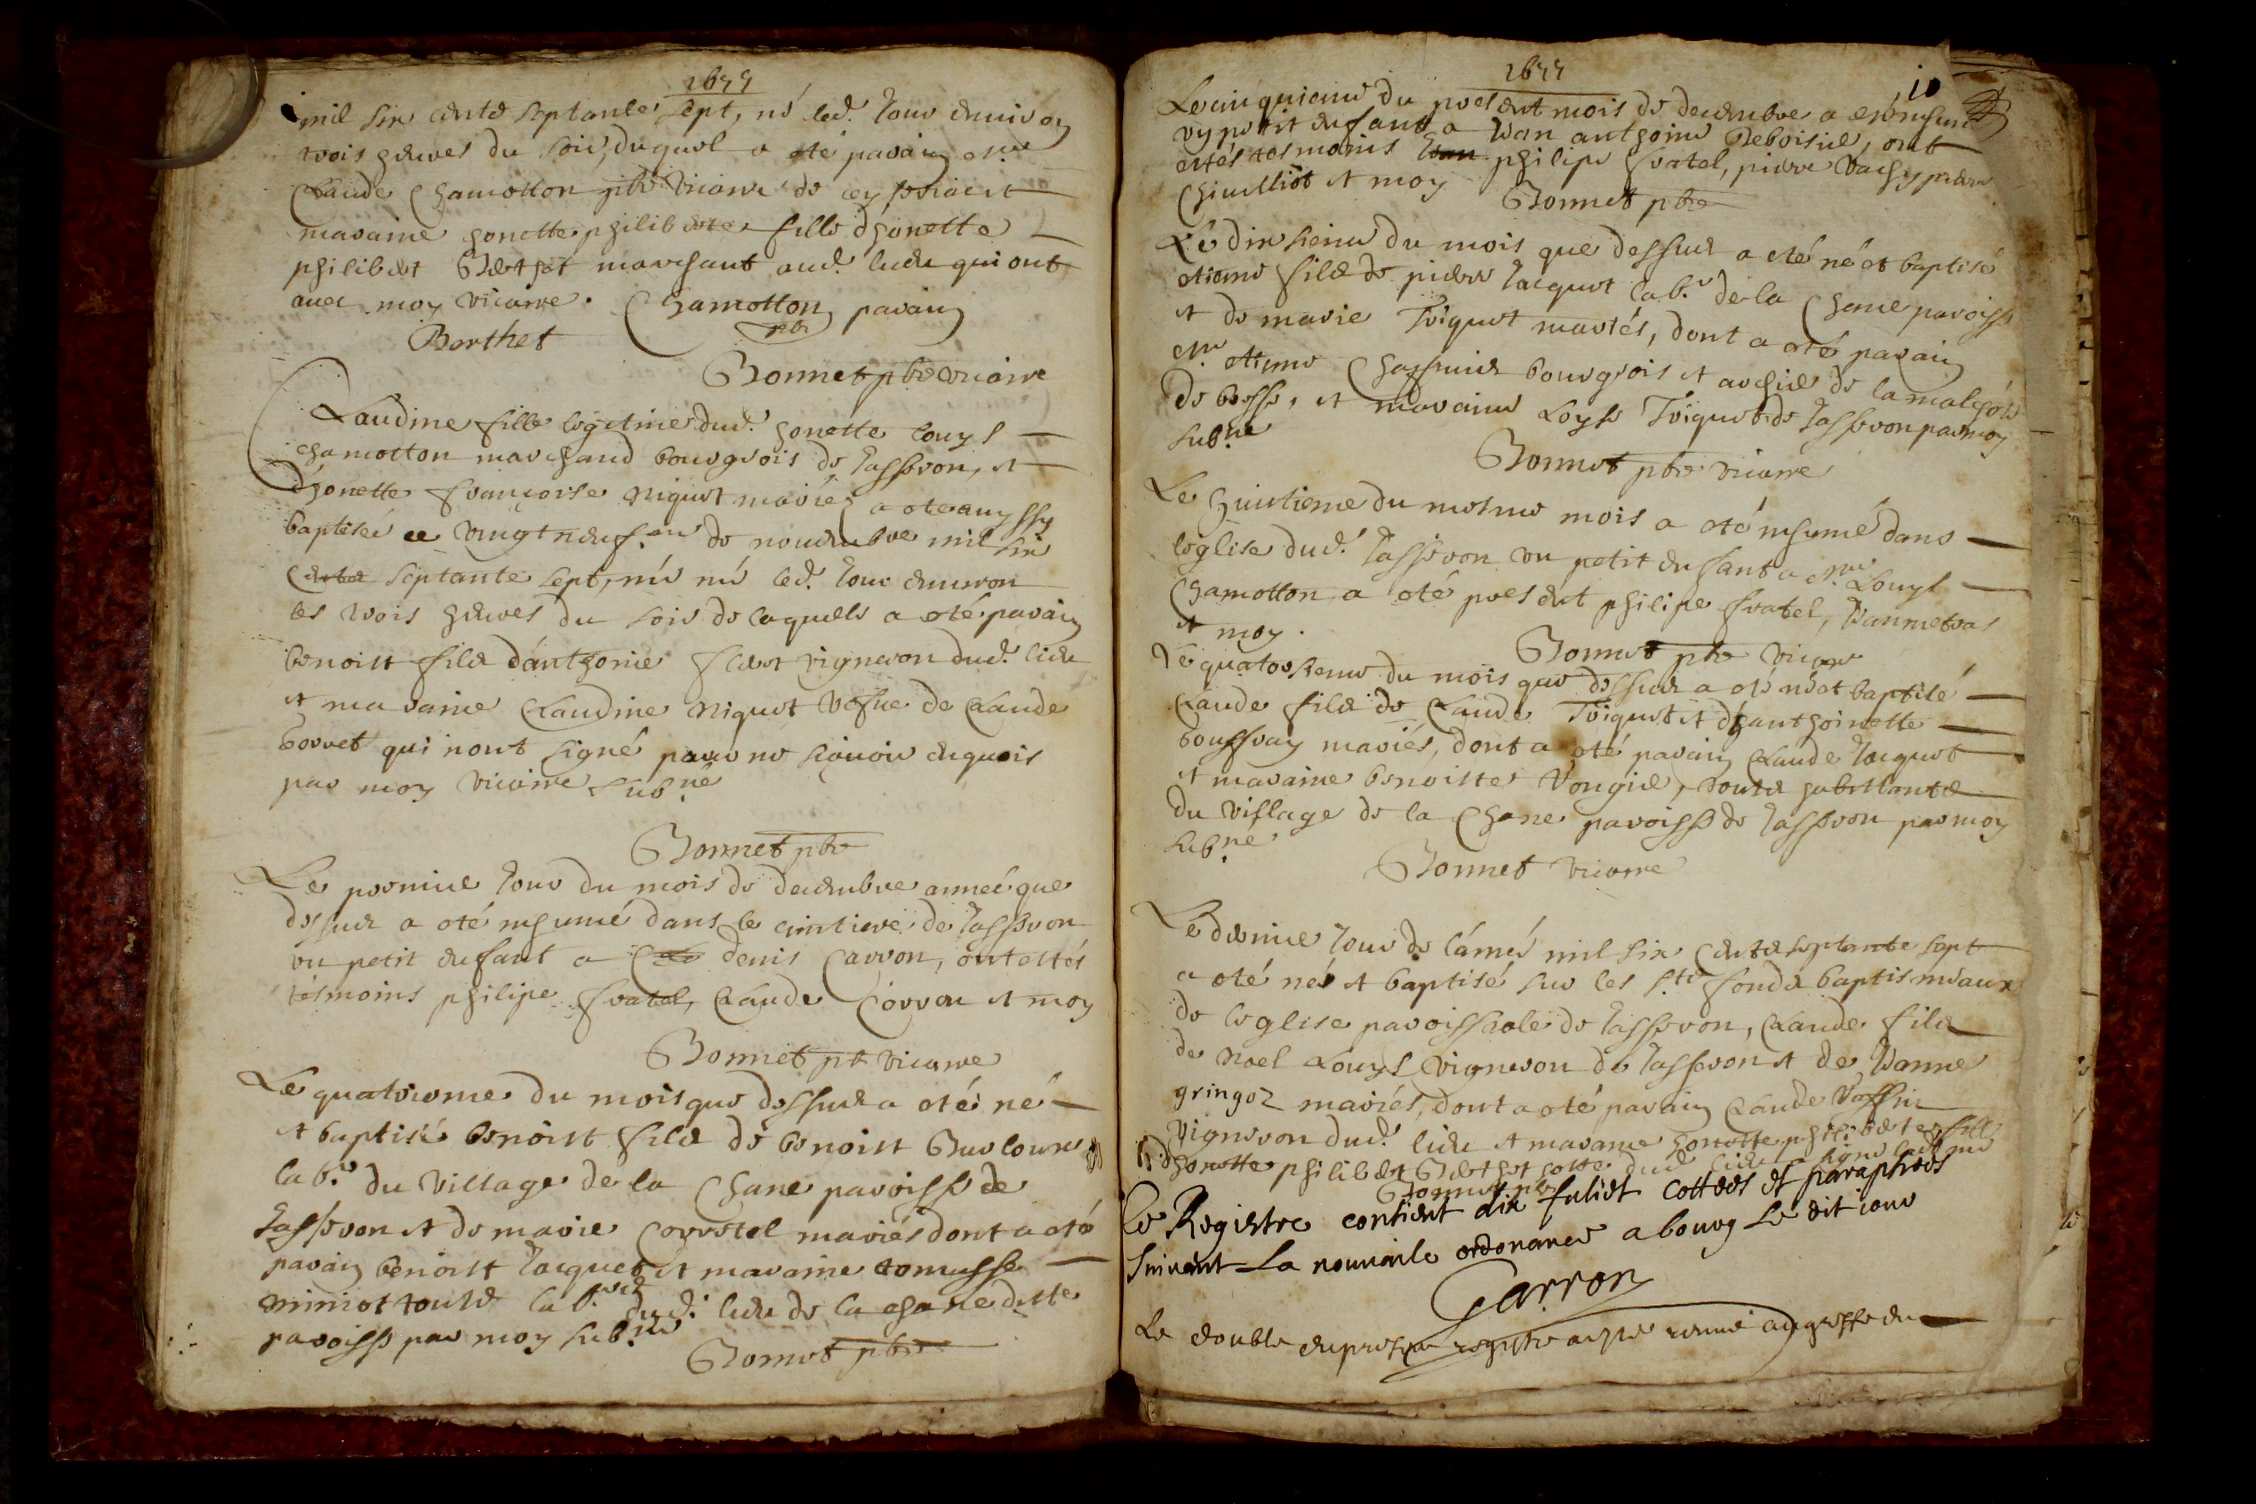 1677
mil six cents septante sept, né led. jour environ
trois heures du soir, duquel a oté parain mre
Claude Chamotton ptre vicaire de Ceyseriat et
maraine honette philiberte fille dhonette
philibert Berthet marchant aud. lieu qui ont
avec moy vicaire. Chamotton parain
ptre
Berthet
Bonnet ptre vicaire
Claudine fille legitime dud. honette Louys
Chamotton marchand bourgeois de Jasseron, et
dhonette francoise Niquet mariés a oté aussy
baptiseé le vingtneufme de novembre mil six
cents septante sept, née led. jour environ
les trois heures du soir de laquelle a oté parain
benoist fils d'anthoine vigneron dud. lieu
et maraine Claudine Niquet vefue de Claude
borret qui nont signé pour ne sçavoir enquis
par moy vicaire subné
Bonnet ptre
Le premier jour du mois de decembre anneé que
dessus a oté inhumé dans le cimtiere de Jasseron
un petit enfant a denis Carron, ont estés
tesmoins philipe fratel, Claude Corron et moy
Bonnet ptr vicaire
Le quatrieme du mois que dessus a oté né
et baptisé benoist fils de benoist
labr. du village de la Chane paroisse de
Jasseron et de marie mariés dont a oté
parain benoist Jacquet et maraine
touts labrs. dud. lieu de la Chane ditte
paroisse par moy subné
Bonnet ptre
1677
10
Le cinquieme du present mois de decembre a
un petit enfant a Jean anthoine Deboisiel, ont
estés tesmoins philipe fratel, pierre
et moy
Bonnet ptre
Le dixieme du mois que dessus a oté né et baptisé
etiene fils de pierre Jacquet labr. de la Chane paroisse
et de marie Triquet mariés, dont a oté parain
mre etiene bourgeois et archier de la
de bresse, et maraine Loyse Triquet de Jasseron par moy
subné
Bonnet ptre vicaire
Le huitieme du mesme mois a oté inhumé dans
leglise dud. Jasseron un petit enfant a mre Louys
Chamotton a oté present philipe fratel,
et moy.
Bonnet ptre vicaire
Le quatorzieme du mois que dessus a oté né et baptisé
Claude fils de Claude Triquet et d'anthoinette
mariés, dont a oté parain Claude Jacquet
et maraine benoiste touts habittants
du village de la Chane paroisse de Jasseron par moy
subné
Bonnet vicaire
Le dernier jour de lannée mil six cents septante sept
a oté né et baptisé sur les sts fonds baptismaux
de leglise paroissiale de Jasseron, Claude fils
de noel Louys vigneron de Jasseron et de Janne
gringoz mariés, dont a oté parain Claude
vigneron dud. lieu et maraine honette philiberte fille
dhonette philibert Berthet
Bonnet ptre
Ce Registre contient dix fuliet cottees et paraphees
Suivant La nouvaile ordonance a bourg Le dit iour
Carron
Le double du present registre a esté remis au greffe du